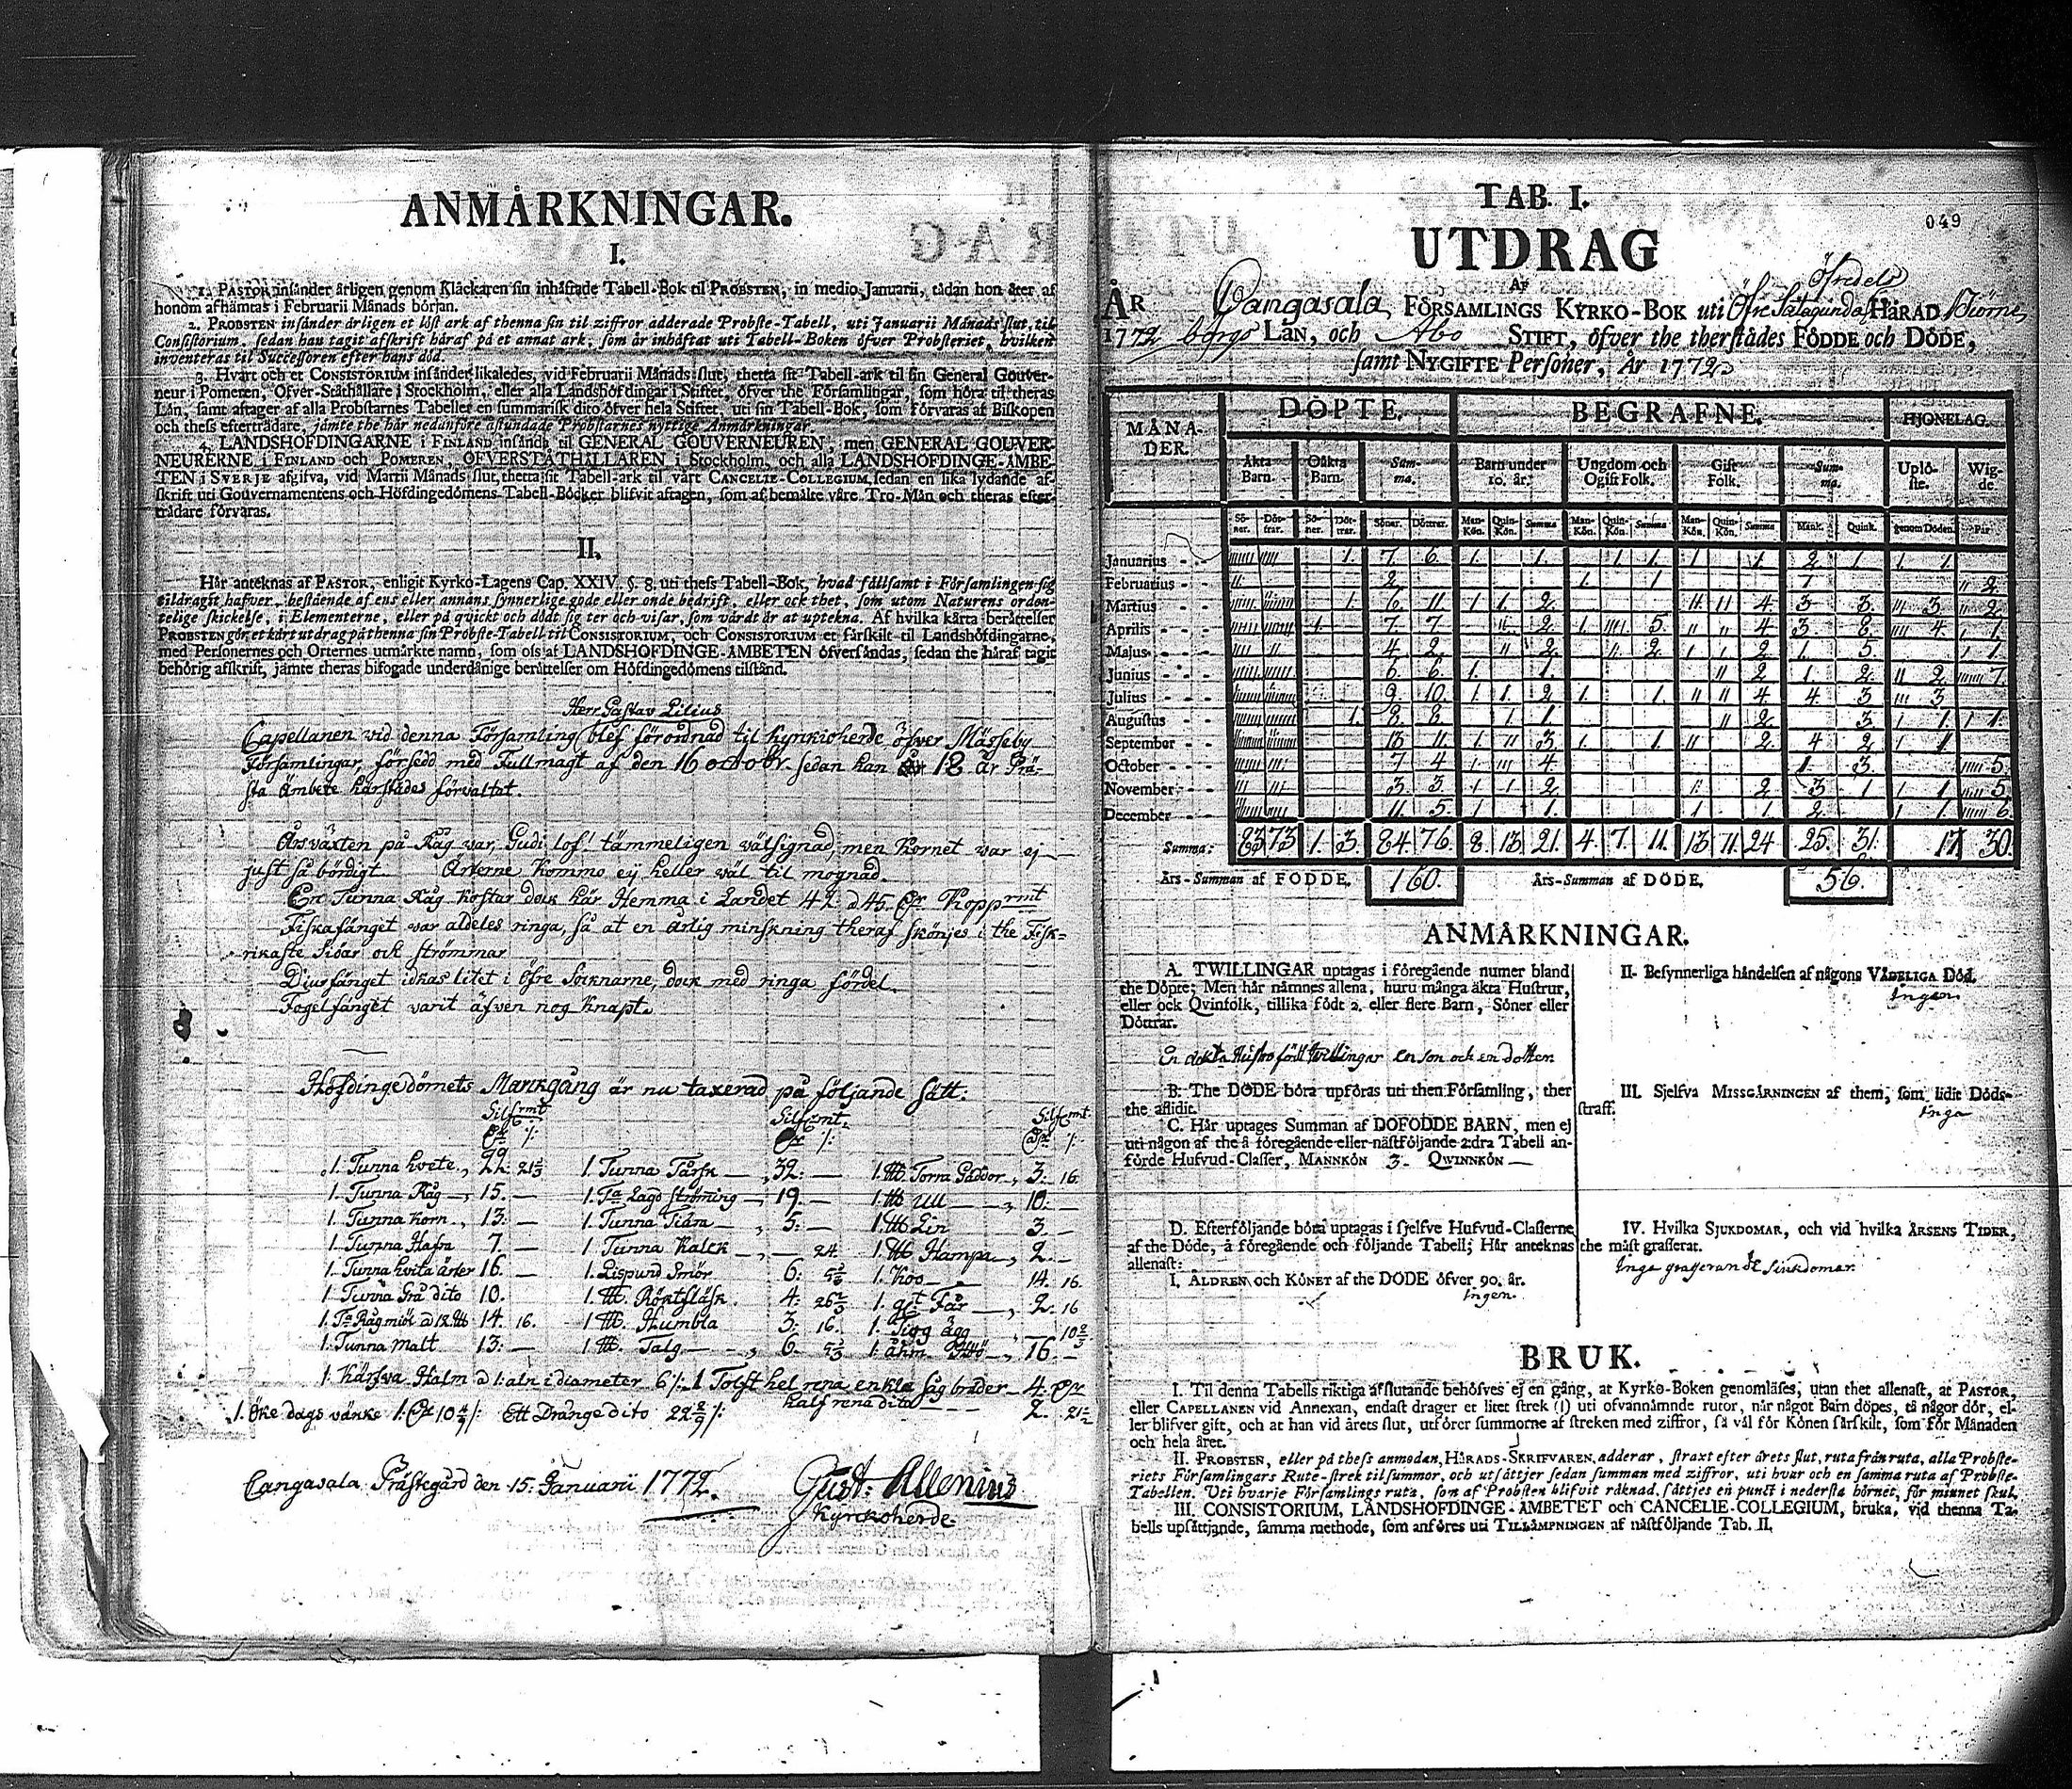 ANMÄRKNINGAR.
I.
1. PASTOR insänder årligen genom Kläckaren sin inhäftade Tabell-Bok til PROBSTEN, in medio Januarii, tådan hon åter af
honom afhämtas i Februarii Månads början.
2. PROBSTEN insänder årligen et löst ark af thenna sin til ziffror adderade Probste-Tabell, uti Januarii Månads slut, til
Consistorium, sedan han tagit afskrift häraf på et annat ark, som är inhäftat uti Tabell-Boken öfver Probsteriet, hvilken
inventeras til Successoren efter hans död.
3. Hvart och et CONSISTORIUM insänder likaledes, vid Februarii Månads slut, thetta sit Tabell-ark til sin General Gouver-
neur i Pomeren, Öfver-Ståthållare i Stockholm, eller alla Landshöfdingar i Stiftet, öfver the Församlingar, som höra til theras
Län, samt aftager af alla Probstarnes Tabeller en summarisk dito öfver hela Stiftet, uti sin Tabell-Bok, som förvaras af Biskopen
och thess efterträdare, jämte the här nedanföre åstundade Probstarnes nyttige Anmärkningar.
4. LANDSHÖFDINGARNE i FINLAND insända til GENERAL GOUVERNEUREN, men GENERAL GOUVER-
NEURERNE i FINLAND och POMEREN, ÖFVERSTÅTHÅLLAREN i Stockholm, och alla LANDSHÖFDINGE-ÄMBE-
TEN i SVERJE afgifva, vid Martii Månads slut, thetta sit Tabell-ark til vårt CANCELIE-COLLEGIUM, sedan en lika lydande af-
skrift uti Gouvernamentens och Höfdingedömens Tabell-Böcker blifvit aftagen, som af bemälte våre Tro-Män och theras efter-
trädare förvaras.
II.
Här anteknas af PASTOR, enligit Kyrko-Lagens Cap. XXIV. §. 8. uti thess Tabell-Bok, hvad sällsamt i Församlingen sig
tildragit hafver, bestående af ens eller annans synnerlige gode eller onde bedrift, eller ock thet, som utom Naturens ordon-
telige skickelse, i Elementerne, eller på quickt och dödt sig ter och visar, som värdt är at uptekna. Af hvilka kårta berättelser
PROBSTEN gör et kårt utdrag på thenna sin Probste-Tabell til CONSISTORIUM, och CONSISTORIUM et särskilt til Landshöfdingarne,
med Personernes och Orternes utmärkte namn, som oss af LANDSHÖFDINGE-ÄMBETEN öfversändas, sedan the häraf tagit
behörig afskrift, jämte theras bifogade underdånige berättelser om Höfdingedömens tilstånd.
Herr Gustav Lilius
Capellanen vid denna Församling blef förordnad til Kyrkioherde öfver Mässeby
Församlingar, försedd med Fullmagt af den 16 octobr. sedan han 18 år Prä-
sta Ämbete härstädes förvaltat.
Årsväxten på Råg var, Gudi lof! tämmeligen välsignad, men Kornet var ej
just så bördigt. Ärterne kommo ej heller wäl til mognad.
En Tunna Råg kostar dock här Hemma i Landet 42 à 45. Dr Kopp.rmt
Fiskafänget war aldeles ringa, så at en årlig minskning theraf skönjes i the Fisk-
rikaste Siöar ock strömmar.
Diurfånget idkas litet i öfre Socknarne, dock med ringa fördel.
Fogelfånget varit äfven nog knapt.
Höfdingedömets Markgång är nu taxerad på följande sätt:
Silfrmt Silfrmt. Silfrmt.
Dr /: Dr /: Dr /:
1. Tunna hvete, 22: 21⅓ 1 Tunna Färsk, 32: — 1. ℔ Torra Gäddor, 3: 16.
1. Tunna Råg, 15. — 1. Ta Lagd Strömming, 19. — 1. ℔ Ull, 10: —
1. Tunna Korn, 13: — 1. Tunna Tiära, 5: — 1. ℔ Lin 3. —
1. Tunna Hafra 7. — 1 Tunna Kalck, — 24. 1. ℔ Hampa, 2. —
1. Tunna hvita ärter 16. — 1. Lispund Smör 6: 5⅓ 1. Koo 14. 16.
1 Tunna Grå dito 10. 1. ℔. Rökt fläsk. 4: 26⅔ 1. gt Får, 2. 16
1. Ta Rågmiöl à 18 ℔ 14. 16. 1 ℔. Humbla 3. 16. 1. Tiog ägg 10⅔.
1. Tunna malt 13: — 1 ℔. Talg, 6. 5⅓ 1. åhm 16. —
1 Kärfva Halm à 1. aln i diameter 6/:. 1 Tolft hel rena enkla såg bräder 4. Dr
half rena dito 2. 21⅓
1. Öke dags vänke 1. Dr 10⅔/: Ett Dränge dito 22⅔/:
Cangasala Prästegård den 15. Januarii 1772.
Gust: Allenius
Kyrckoherde.
049
TAB. I.
UTDRAG
AF
Öfredels
ÅR Cangasala FÖRSAMLINGS KYRKO-BOK uti Öfre Satagunda HÄRAD Biörne
1772 borgs LÄN, och Åbo STIFT, öfver the therstädes FÖDDE och DÖDE,
samt NYGIFTE Personer, År 1772.
MÅNA-DER. DÖPTE. BEGRAFNE. HJONELAG.
Äkta Barn. Oäkta Barn. Sum-ma. Barn under 10. år. Ungdom och Ogift Folk. Gift Folk. Sum-ma. Uplö-ste. Wig-de
Sö-ner. Döt-trar. Sö-ner. Döt-trar. Söner. Döttrar. Man-Kön. Quin-Kön. Summa Man-Kön. Quin-Kön. Summa Man-Kön. Quin-Kön. Summa Mank. Quink. genom Döden. Par
Januarius 1. 7 6 1. 1. 1 1. 1 1. 2 1 1 1.
Februarius 2 1. 1 1 2
Martius 1. 6 11 1 1. 2 4 3 3. 3 2
Aprilis 1. 7 7 2 1. 5. 4 3 8. 4 1.
Majus 4 2 2. 2 1 1 2 1. 5 1
Junius 6 6 1. 1. 2 1. 2 2 7
Julius 9 10 1 1. 2 1. 1. 4 4 3 3
Augustus 1. 8 8 1 1 2 3 1. 1
September 13 11 1 3 1. 1. 2. 4 2 1.
October 7 4 1. 4 1 3. 5
November 3. 3. 1 1 2 2 3 1 1 5
December 11. 5. 1 1. 1. 1. 2. 1. 6
Summa: 83 73 1. 3. 84 76 8. 13 21. 4. 7. 11. 13 11 24 25. 31. 17 30
Års-Summan af FÖDDE. 160. Års-Summan af DÖDE. 56.
ANMÄRKNINGAR.
A. TWILLINGAR uptagas i föregående numer bland
the Döpte; Men här nämnes allena, huru många äkta Hustrur,
eller ock Qvinfolk, tillika födt 2. eller flere Barn, Söner eller
Döttrar.
En äckta Hustro född twillingar en son ock en dotter.
B. The DÖDE böra upföras uti then Församling, ther
the aflidit.
C. Här uptages Summan af DÖFÖDDE BARN, men ej
uti någon af the å föregående eller nästföljande 2dra Tabell an-
förde Hufvud-Classer, MANNKÖN 3. QWINNKÖN —
D. Efterföljande böra uptagas i sjelfve Hufvud-Classerne
af the Döde, å föregående och följande Tabell; Här anteknas
allenast:
I. ÅLDREN och KÖNET af the DÖDE öfver 90. år.
Ingen.
II. Besynnerliga händelsen af någons VÅDELIGA Död.
Ingen
III. Sjelfva MISSGÄRNINGEN af them, som lidit Döds-
straff.
Inga
IV. Hvilka SJUKDOMAR, och vid hvilka ÅRSENS TIDER,
the mäst grasserat.
Inga grasserande Siukdomar.
BRUK.
I. Til denna Tabells riktiga afslutande behöfves ej en gång, at Kyrko-Boken genomläses, utan thet allenast, at PASTOR,
eller CAPELLANEN vid Annexan, endast drager et litet strek (l) uti ofvannämnde rutor, när något Barn döpes, tå någor dör, el-
ler blifver gift, och at han vid årets slut, utförer summorne af streken med ziffror, så väl för Könen särskilt, som för Månaden
och hela året.
II. PROBSTEN, eller på thess anmodan, HÄRADS-SKRIFVAREN, adderar, straxt efter årets slut, ruta från ruta, alla Probste-
riets Församlingars Rute-strek til summor, och utsättjer sedan summan med ziffror, uti hvar och en samma ruta af Probste-
Tabellen. Uti hvarje Församlings ruta, som af Probsten blifvit räknad, sättjes en punct i nedersta hörnet, för minnet skul.
III. CONSISTORIUM, LANDSHÖFDINGE-ÄMBETET och CANCELIE-COLLEGIUM, bruka, vid thenna Ta-
bells upsättjande, samma methode, som anföres uti TILLÄMPNINGEN af nästföljande Tab. II.